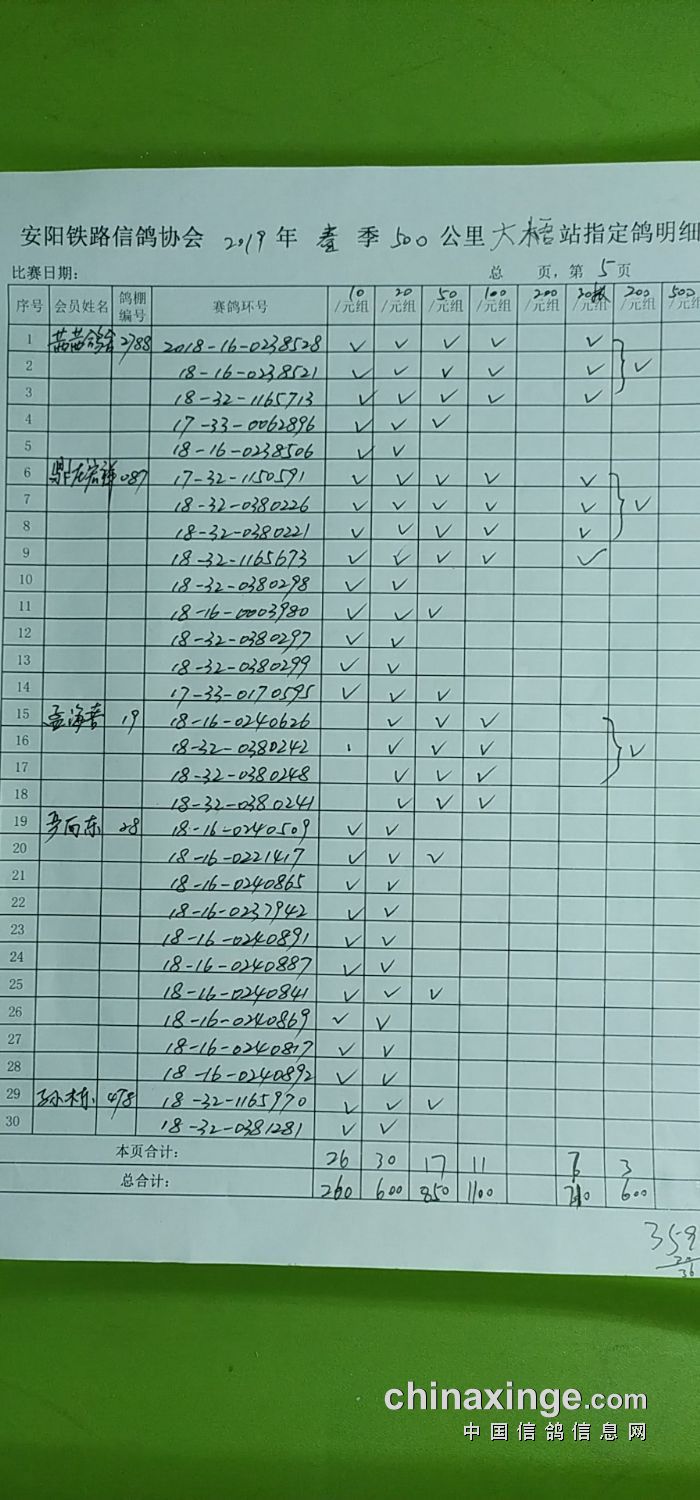 安阳铁路信鸽协会 2019年 春 季 500 公里 大梧 站指定鸽明细
比赛日期: 总 页, 第 5 页
序号 会员姓名 鸽棚编号 赛鸽环号 10/元组 20/元组 50/元组 100/元组 200/元组 30/元组 200/元组 500/元组
1 茜茜鸽舍 2788 2018-16-0238528 ✓ ✓ ✓ ✓ ✓
2 18-16-0238521 ✓ ✓ ✓ ✓ ✓ ✓
3 18-32-1165713 ✓ ✓ ✓ ✓ ✓
4 17-33-0062896 ✓ ✓ ✓
5 18-16-0238506 ✓ ✓
6 087 17-32-1150591 ✓ ✓ ✓ ✓ ✓
7 18-32-0380226 ✓ ✓ ✓ ✓ ✓ ✓
8 18-32-0380221 ✓ ✓ ✓ ✓ ✓
9 18-32-1165673 ✓ ✓ ✓ ✓ ✓
10 18-32-0380298 ✓ ✓
11 18-16-0003980 ✓ ✓ ✓
12 18-32-0380297 ✓ ✓
13 18-32-0380299 ✓ ✓
14 17-33-0170595 ✓ ✓ ✓
15 孟海喜 19 18-16-0240626 ✓ ✓ ✓
16 18-32-0380242 ✓ ✓ ✓ ✓
17 18-32-0380248 ✓ ✓ ✓
18 18-32-0380241 ✓ ✓ ✓
19 28 18-16-0240509 ✓ ✓
20 18-16-0221417 ✓ ✓ ✓
21 18-16-0240865 ✓ ✓
22 18-16-0237942 ✓ ✓
23 18-16-0240891 ✓ ✓
24 18-16-0240887 ✓ ✓
25 18-16-0240841 ✓ ✓ ✓
26 18-16-0240869 ✓ ✓
27 18-16-0240817 ✓ ✓
28 18-16-0240892 ✓ ✓
29 孙林东 478 18-32-1165970 ✓ ✓ ✓
30 18-32-0381281 ✓ ✓
本页合计: 26 30 17 11 3
总合计: 260 600 850 1100 210 600
359
chinaxinge.com
中国信鸽信息网